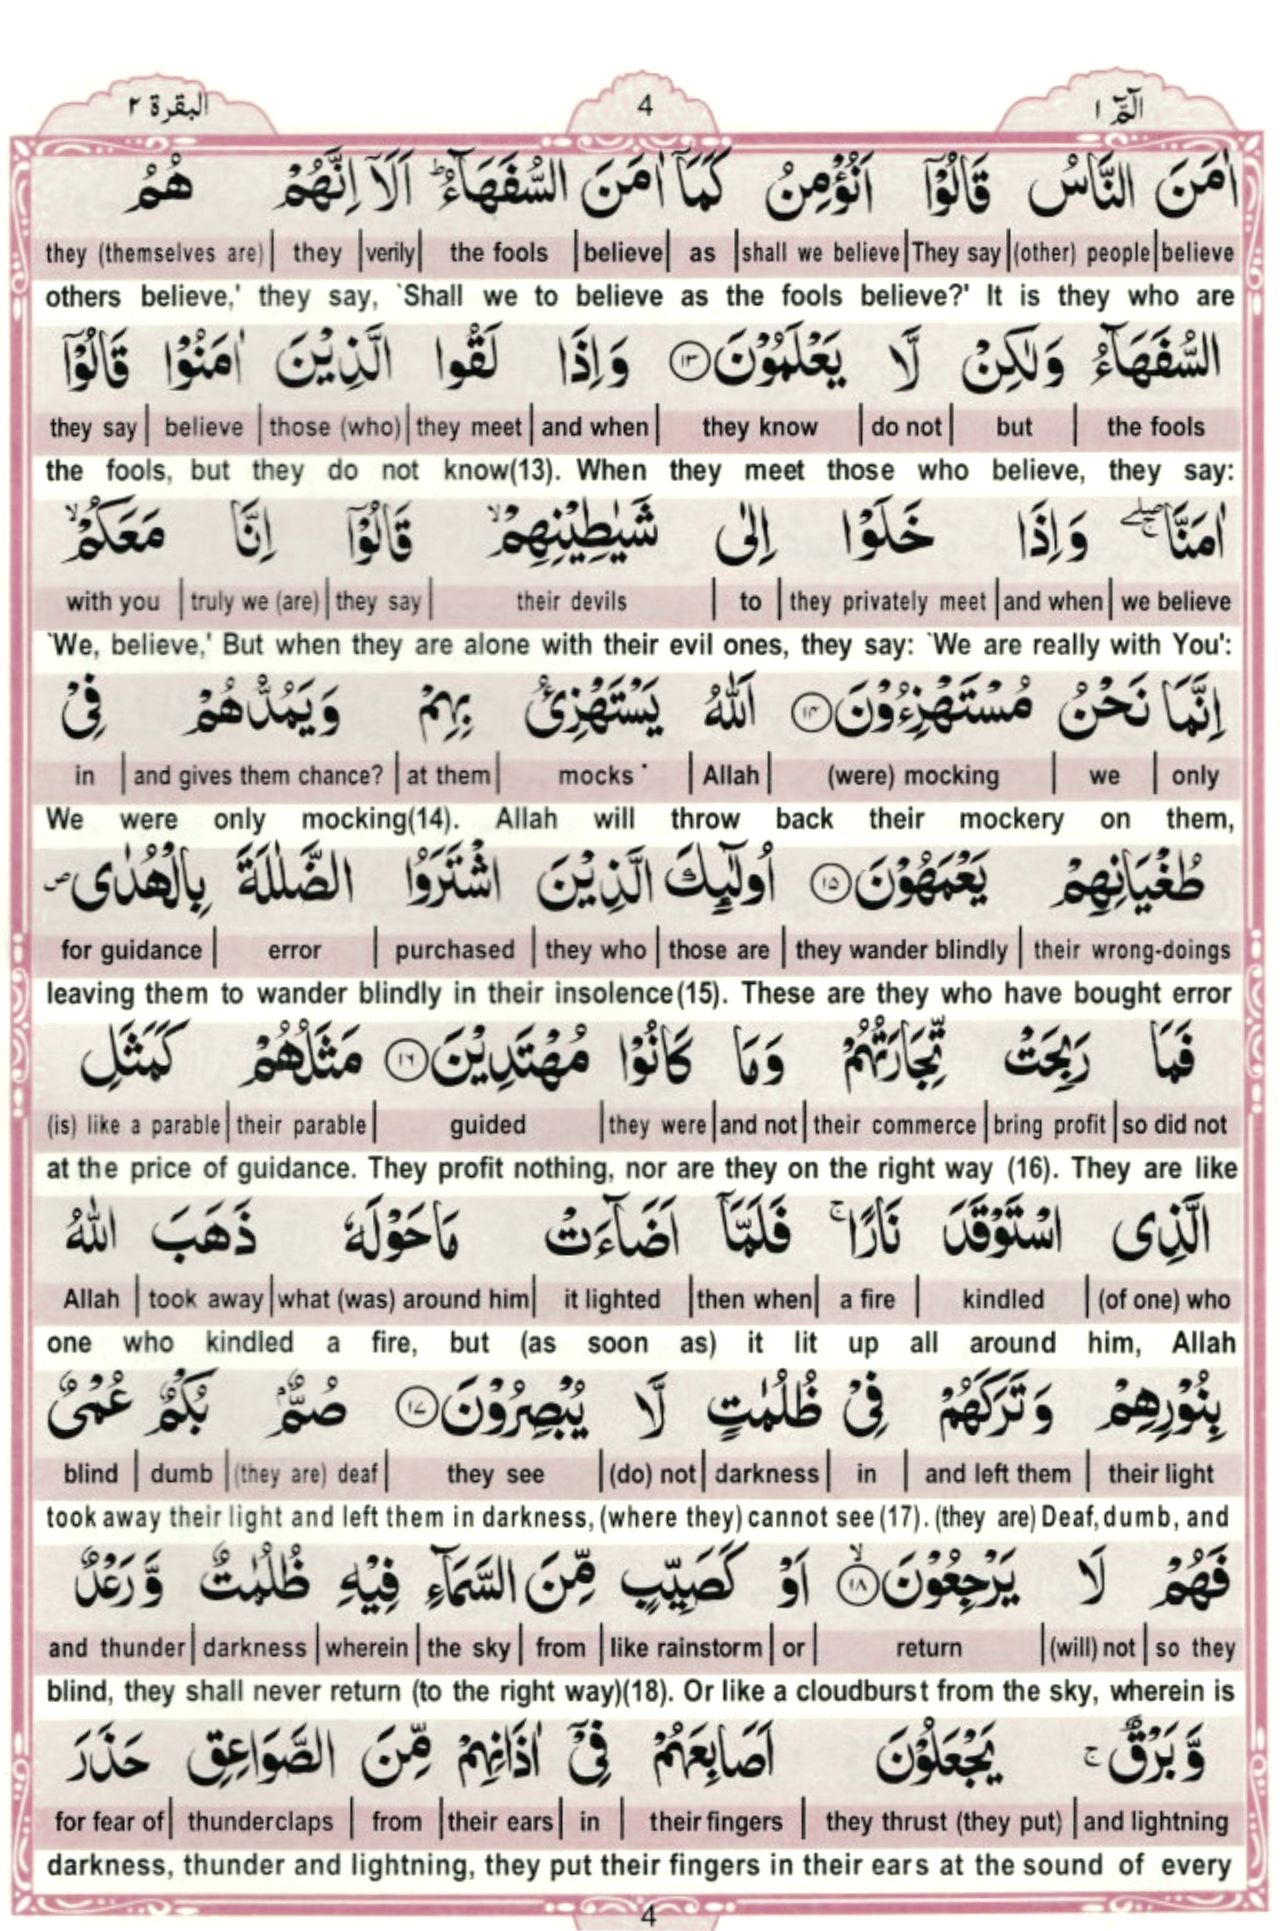 البقرة ٢
4
الٓمّٓ ١
اٰمَنَ النَّاسُ قَالُوْٓا اَنُؤْمِنُ كَمَآ اٰمَنَ السُّفَهَآءُ ؕ اَلَآ اِنَّهُمْ هُمُ
they (themselves are) | they | verily | the fools | believe | as | shall we believe | They say | (other) people | believe
others believe,' they say, `Shall we to believe as the fools believe?' It is they who are
السُّفَهَآءُ وَلٰكِنْ لَّا يَعْلَمُوْنَ ۝١٣ وَاِذَا لَقُوا الَّذِيْنَ اٰمَنُوْا قَالُوْٓا
they say | believe | those (who) | they meet | and when | they know | do not | but | the fools
the fools, but they do not know(13). When they meet those who believe, they say:
اٰمَنَّا ۖۚ وَاِذَا خَلَوْا اِلٰى شَيٰطِيْنِهِمْ ۙ قَالُوْٓا اِنَّا مَعَكُمْ ۙ
with you | truly we (are) | they say | their devils | to | they privately meet | and when | we believe
`We, believe,' But when they are alone with their evil ones, they say: `We are really with You':
اِنَّمَا نَحْنُ مُسْتَهْزِءُوْنَ ۝١٤ اَللّٰهُ يَسْتَهْزِئُ بِهِمْ وَيَمُدُّهُمْ فِيْ
in | and gives them chance? | at them | mocks | Allah | (were) mocking | we | only
We were only mocking(14). Allah will throw back their mockery on them,
طُغْيَانِهِمْ يَعْمَهُوْنَ ۝١٥ اُولٰٓئِكَ الَّذِيْنَ اشْتَرَوُا الضَّلٰلَةَ بِالْهُدٰى ص
for guidance | error | purchased | they who | those are | they wander blindly | their wrong-doings
leaving them to wander blindly in their insolence(15). These are they who have bought error
فَمَا رَبِحَتْ تِّجَارَتُهُمْ وَمَا كَانُوْا مُهْتَدِيْنَ ۝١٦ مَثَلُهُمْ كَمَثَلِ
(is) like a parable | their parable | guided | they were | and not | their commerce | bring profit | so did not
at the price of guidance. They profit nothing, nor are they on the right way (16). They are like
الَّذِى اسْتَوْقَدَ نَارًا ۚ فَلَمَّآ اَضَآءَتْ مَاحَوْلَهٗ ذَهَبَ اللّٰهُ
Allah | took away | what (was) around him | it lighted | then when | a fire | kindled | (of one) who
one who kindled a fire, but (as soon as) it lit up all around him, Allah
بِنُوْرِهِمْ وَتَرَكَهُمْ فِيْ ظُلُمٰتٍ لَّا يُبْصِرُوْنَ ۝١٧ صُمٌّۢ بُكْمٌ عُمْىٌ
blind | dumb | (they are) deaf | they see | (do) not | darkness | in | and left them | their light
took away their light and left them in darkness, (where they) cannot see (17). (they are) Deaf, dumb, and
فَهُمْ لَا يَرْجِعُوْنَ ۝١٨ ۙ اَوْ كَصَيِّبٍ مِّنَ السَّمَآءِ فِيْهِ ظُلُمٰتٌ وَّرَعْدٌ
and thunder | darkness | wherein | the sky | from | like rainstorm | or | return | (will) not | so they
blind, they shall never return (to the right way)(18). Or like a cloudburst from the sky, wherein is
وَّبَرْقٌ ۚ يَجْعَلُوْنَ اَصَابِعَهُمْ فِيْٓ اٰذَانِهِمْ مِّنَ الصَّوَاعِقِ حَذَرَ
for fear of | thunderclaps | from | their ears | in | their fingers | they thrust (they put) | and lightning
darkness, thunder and lightning, they put their fingers in their ears at the sound of every
4